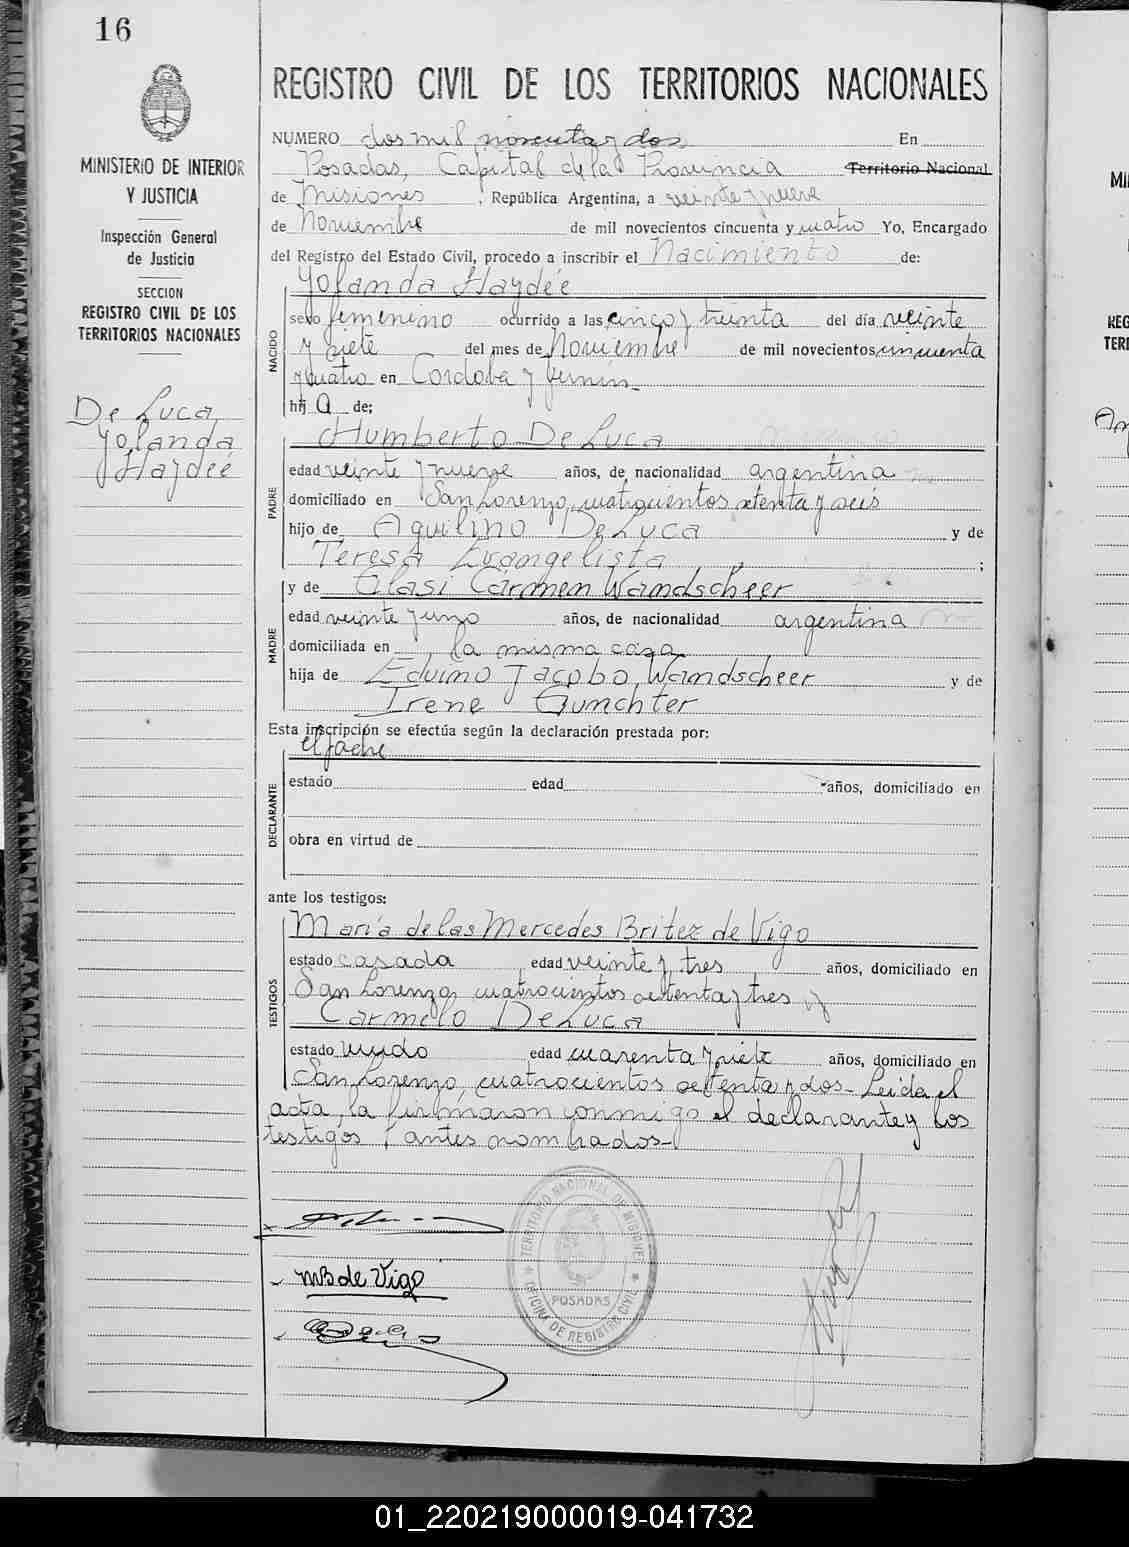 16
REGISTRO CIVIL DE LOS TERRITORIOS NACIONALES
MINISTERIO DE INTERIOR
Y JUSTICIA
Inspección General
de Justicia
SECCION
REGISTRO CIVIL DE LOS
TERRITORIOS NACIONALES
De Luca
Yolanda
Haydée
NUMERO dos mil noventa y dos En
Posadas, Capital de la Provincia Territorio Nacional
de Misiones, República Argentina, a veinte y nueve
de Noviembre de mil novecientos cincuenta y cuatro Yo, Encargado
del Registro del Estado Civil, procedo a inscribir el Nacimiento de:
NACIDO
Yolanda Haydée
sexo femenino ocurrido a las cinco y treinta del día veinte
y siete del mes de Noviembre de mil novecientos cincuenta
y cuatro en Cordoba y Junin
hij a de;
PADRE
Humberto De Luca
edad veinte y nueve años, de nacionalidad argentina
domiciliado en San Lorenzo, cuatrocientos setenta y seis
hijo de Aquilino De Luca y de
Teresa Evangelista ;
MADRE
y de Olasi Carmen Wandscheer
edad veinte y uno años, de nacionalidad argentina
domiciliada en la misma casa
hija de Eduino Jacobo Wandscheer y de
Irene Gunchter
Esta inscripción se efectúa según la declaración prestada por:
DECLARANTE
el padre
estado edad años, domiciliado en
obra en virtud de
ante los testigos:
TESTIGOS
María de las Mercedes Britez de Vigo
estado casada edad veinte y tres años, domiciliado en
San Lorenzo, cuatrocientos setenta y tres y
Carmelo De Luca
estado viudo edad cuarenta y siete años, domiciliado en
San Lorenzo, cuatrocientos setenta y dos- Leida el
acta, la firmaron conmigo el declarante y los
testigos antes nombrados-
M B de Vigo
TERRITORIO NACIONAL DE MISIONES
POSADAS
OFICINA DE REGISTRO CIVIL
01_220219000019-041732